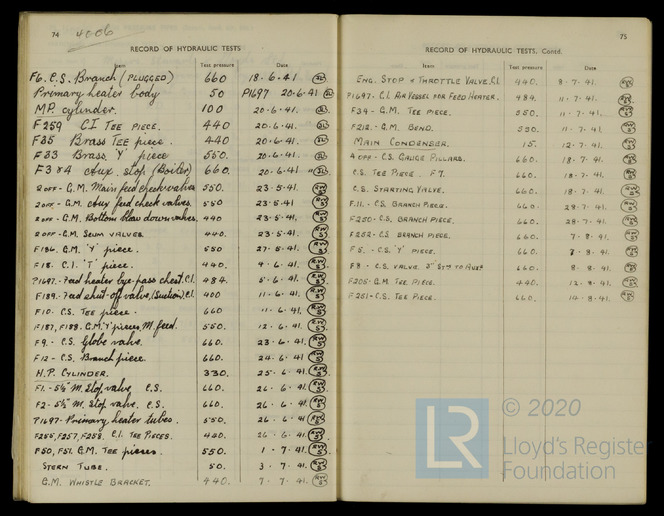 74 4006
RECORD OF HYDRAULIC TESTS
Item Test pressure Date
F6. C.S. Branch (PLUGGED) 660 18.6.41 SL
Primary heater body 50 P1697 20.6.41 SL
M.P. cylinder. 100 20.6.41. SL
F259 C.I. TEE PIECE. 440 20.6.41. SL
F35 Brass Tee piece. 440 20.6.41. SL
F33 Brass 'Y' piece 550. 20.6.41. SL
F3 & 4 Aux. stop (Boiler) 660. 20.6.41 " SL
2 OFF - G.M. Main feed check valves 550. 23.5.41. RW S
2 OFF - G.M. Aux feed check valves. 550 23.5.41 RW S
2 OFF - G.M. Bottom blow down valves. 440 23.5.41. RW S
2 OFF - G.M. SCUM VALVES 440. 23.5.41. RW S
F186. G.M. 'Y' piece. 550 27.5.41. RW S
F18. C.I. 'T' piece. 440. 9.6.41. RW S
P1697. Feed heater bye-pass chest. C.I. 484. 5.6.41. RW S
F189. Feed shut-off valve, (Suction), C.I. 400 11.6.41. RW S
F10. C.S. Tee piece. 660 11.6.41. RW S
F187, F188. G.M. 'Y' pieces, M. feed. 550. 12.6.41. RW S
F9. - C.S. Globe valve. 660. 23.6.41. RW S
F12 - C.S. Branch piece. 660. 24.6.41. RW S
H.P. CYLINDER. 330. 25.6.41. RW S
F1. - 5½" M. Stop valve. C.S. 660. 26.6.41. RW S
F2 - 5½" M. Stop valve. C.S. 660. 26.6.41. RW S
P1697 - Primary heater tubes. 550. 26.6.41 RW S
F255, F257, F258. C.I. TEE PIECES. 440. 26.6.41. RW S
F50, F51. G.M. TEE pieces. 550. 1.7.41. RW S
STERN TUBE. 50. 3.7.41. RW S
G.M. WHISTLE BRACKET. 440. 7.7.41. RW S
75
RECORD OF HYDRAULIC TESTS. Contd.
Item Test pressure Date
ENG. STOP & THROTTLE VALVE. C.I. 440. 8.7.41. RW S
P1697. C.I. AIR VESSEL FOR FEED HEATER. 484. 11.7.41. RW S
F34 - G.M. TEE PIECE. 550. 11.7.41. RW S
F212 - G.M. BEND. 550. 11.7.41. RW S
MAIN CONDENSER. 15. 12.7.41. RW S
4 OFF - C.S. GAUGE PILLARS. 660. 18.7.41. RW S
C.S. TEE PIECE. F7. 660. 18.7.41. RW S
C.S. STARTING VALVE. 660. 18.7.41. RW S
F.11 - C.S. BRANCH PIECE. 660. 28.7.41. RW S
F250 - C.S. BRANCH PIECE. 660 28.7.41. RW S
F252 - C.S. BRANCH PIECE. 660. 7.8.41. RW S
F5. - C.S. 'Y' PIECE. 660. 7.8.41. RW S
F8 - C.S. VALVE. 660. 8.8.41. RW S
F205 - G.M. TEE PIECE. 440. 12.8.41. RW S
F251 - C.S. TEE PIECE. 660. 14.8.41. RW S
LR © 2020
Lloyd's Register
Foundation